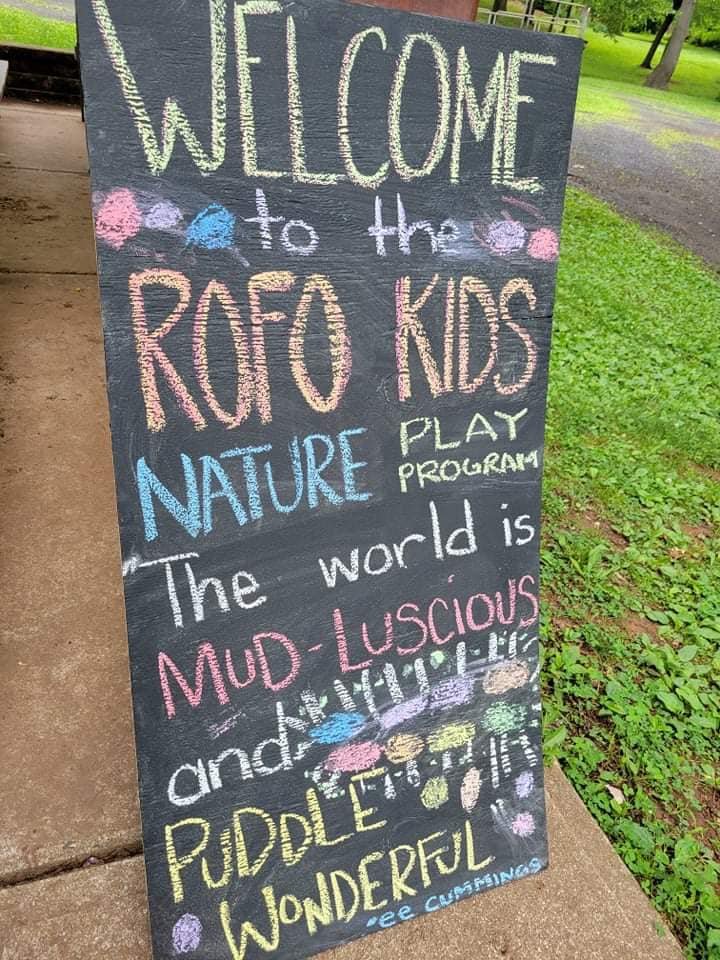 WELCOME
to the
ROFO KIDS
NATURE PLAY PROGRAM
"The world is
MUD-LUSCIOUS
and
PUDDLE
WONDERFUL
"ee CUMMINGS